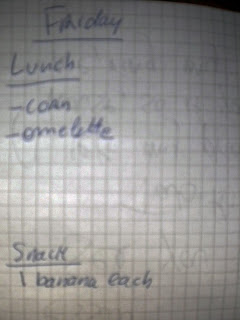 Friday
Lunch
-corn
-omelette
Snack
1 banana each